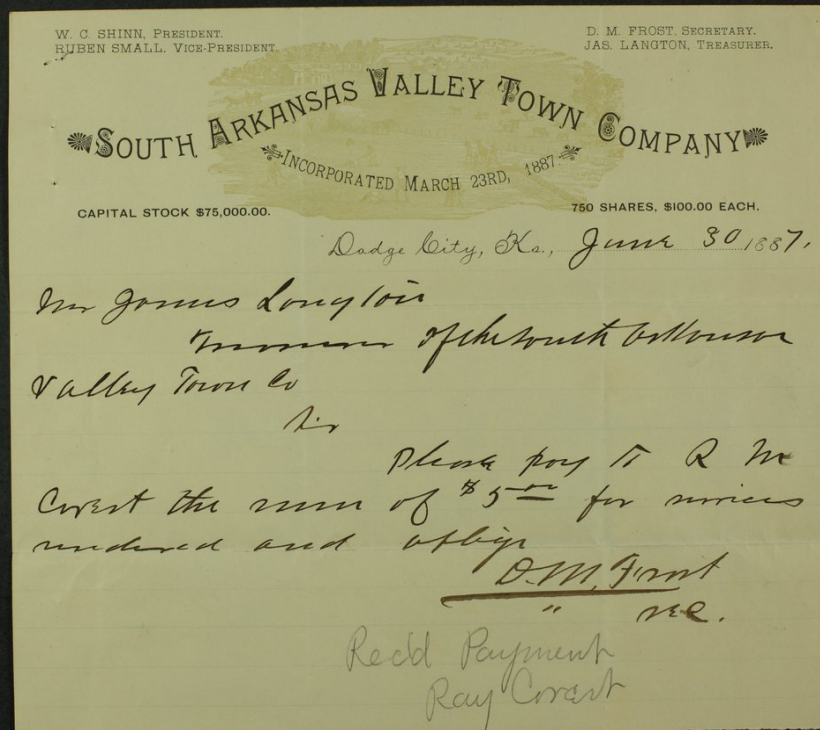 W. C. SHINN, PRESIDENT.
RUBEN SMALL, VICE-PRESIDENT.
D. M. FROST, SECRETARY.
JAS. LANGTON, TREASURER.
SOUTH ARKANSAS VALLEY TOWN COMPANY
INCORPORATED MARCH 23RD, 1887.
CAPITAL STOCK $75,000.00.
750 SHARES, $100.00 EACH.
Dodge City, Ks., June 30 1887.
Mr James Langton
Treasurer of the South Arkansas
Valley Town Co
Sir
Please pay to R M
Covert the sum of $5 00 for services
rendered and oblige
D. M. Frost
" Sec.
Rec'd Payment
Ray Covert